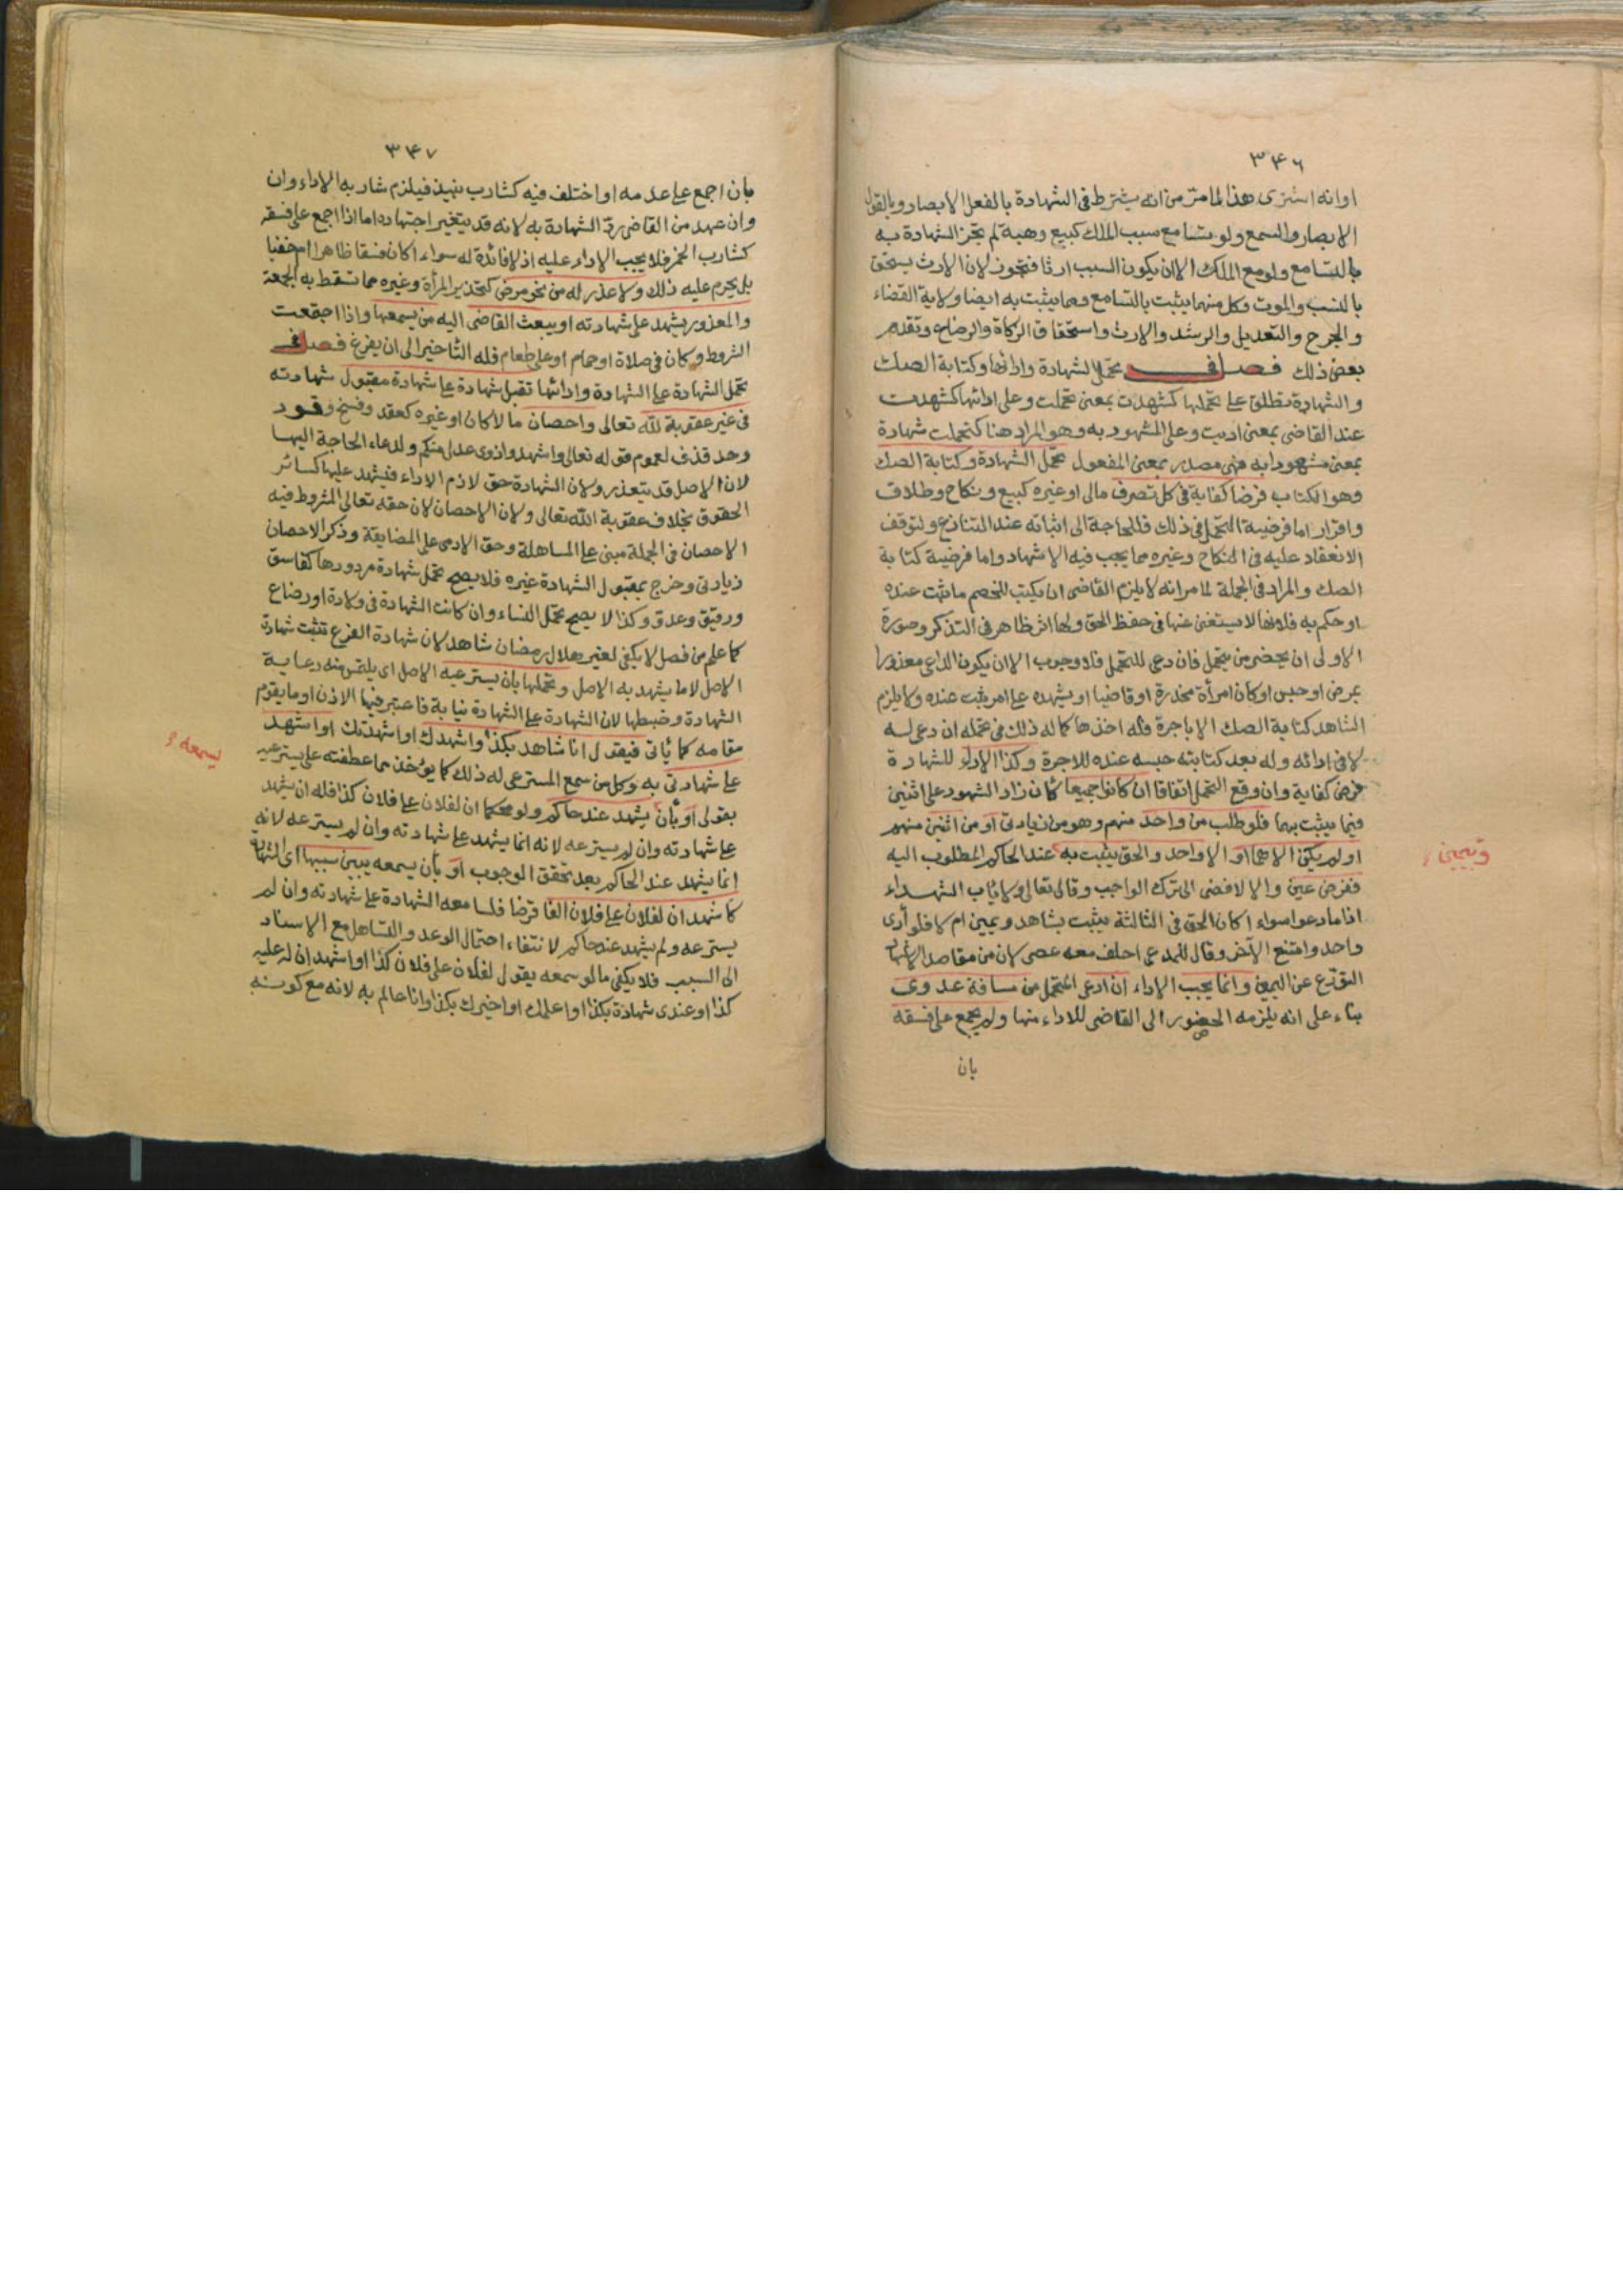 ٣٤٦
او انه اشترى هذا لما مر من انه يشترط فى الشهادة بالفعل الابصار وبالقول
الابصار والسمع ولو تسامع سبب الملك كبيع وهبة لم تجز الشهادة به
بالتسامع ولو مع الملك الا ان يكون السبب ارثا فتجوز لان الارث يستحق
بالنسب والموت وكل منهما يثبت بالتسامع ومما يثبت به ايضا ولاية القضاء
والجرح والتعديل والرشد والارث واستحقاق الزكاة والرضاع وتقدم
بعض ذلك فصل فى تحمل الشهادة وادائها وكتابة الصك
والشهادة تطلق على تحملها كشهدت بمعنى تحملت وعلى ادائها كشهدت
عند القاضى بمعنى اديت وعلى المشهود به وهو المراد هنا كتحملت شهادة
بمعنى مشهودا به فهى مصدر بمعنى المفعول تحمل الشهادة وكتابة الصك
وهو الكتاب فرضا كفاية فى كل تصرف مالى او غيره كبيع ونكاح وطلاق
واقرار اما فرضية التحمل فى ذلك فللحاجة الى اثباته عند التنازع ولتوقف
الانعقاد عليه فى النكاح وغيره مما يجب فيه الاشهاد واما فرضية كتابة
الصك والمراد فى الجملة لما مر انه لا يلزم القاضى ان يكتب للخصم ما ثبت عنده
او حكم به فلانها لا يستغنى عنها فى حفظ الحق ولها اثر ظاهر فى التذكر وصورة
الاولى ان يحضر من يتحمل فان دعى للتحمل فلا وجوب الا ان يكون الداعى معذورا
بمرض او حبس او كان امرأة مخدرة او قاضيا او يشهده على امر ثبت عنده ولا يلزم
الشاهد كتابة الصك الا باجرة وله اخذها كما له ذلك فى تحمله ان دعى له
لا فى ادائه وله بعد كتابته حبسه عنده للاجرة وكذا الاداء للشهادة
فرض كفاية وان وقع التحمل اتفاقا ان كانوا جميعا كأن زاد الشهود على اثنين
فيما يثبت بهما فلو طلب من واحد منهم وهو من زيادتى او من اثنين منهم
او لم يكن الا هما او الا واحد والحق يثبت به عند الحاكم المطلوب اليه
ففرض عين والا لافضى الى ترك الواجب وقال تعالى ولا يأب الشهداء
اذا ما دعوا سواء اكان الحق فى الثالثة يثبت بشاهد ويمين ام لا فلو أدى
واحد وامتنع الآخر وقال للمدعى احلف معه عصى لان من مقاصد الاشهاد
التورع عن اليمين وانما يجب الاداء ان دعى المتحمل من مسافة عدوى
بناء على انه يلزمه الحضور الى القاضى للاداء منها ولم يجمع على فسقه
بان
وبيمين
٣٤٧
بان اجمع على عدمه او اختلف فيه كشارب نبيذ فيلزم شاربه الاداء وان
وان عهد من القاضى رد الشهادة به لانه قد يتغير اجتهاده اما اذا اجمع على فسقه
كشارب الخمر فلا يجب الاداء عليه اذ لا فائدة له سواء اكان فسقا ظاهرا ام خفيا
بل يحرم عليه ذلك ولا عذر له من نحو مرض كتخدير المرأة وغيره مما تسقط به الجمعة
والمعذور يشهد على شهادته او يبعث القاضى اليه من يسمعها واذا اجتمعت
الشروط وكان فى صلاة او حمام او على طعام فله التأخير الى ان يفرغ فصل فى
تحمل الشهادة على الشهادة وادائها تقبل شهادة على شهادة مقبول شهادته
فى غير عقوبة لله تعالى واحصان مالا كان او غيره كعقد وفسخ وقود
وحد قذف لعموم قوله تعالى واشهدوا ذوى عدل منكم ولدعاء الحاجة اليها
لان الاصل قد يتعذر ولان الشهادة حق لازم الاداء فيشهد عليها كسائر
الحقوق بخلاف عقوبة الله تعالى ولان الاحصان لان حقه تعالى المشروط فيه
الاحصان فى الجملة مبنى على المساهلة وحق الادمى على المضايقة وذكر الاحصان
زيادتى وخرج بمقبول الشهادة غيره فلا يصح تحمل شهادة مردودها كفاسق
ورقيق وعدو وكذا لا يصح تحمل النساء وان كانت الشهادة فى ولادة او رضاع
كما علم من فصل لا يكفى لغير هلال رمضان شاهد لان شهادة الفرع تثبت شهادة
الاصل لا ما يشهد به الاصل وتحملها بان يسترعيه الاصل اى يلتمس منه رعاية
الشهادة وضبطها لان الشهادة على الشهادة نيابة فاعتبر فيها الاذن او ما يقوم
مقامه كما يأتى فيقول انا شاهد بكذا واشهدك او اشهدتك او اشهد
على شهادتى به وكل من سمع المسترعى له ذلك كما يؤخذ مما عطفته على يسترعيه
بقولى او بأن يشهد عند حاكم ولو محكما ان لفلان على فلان كذا فله ان يشهد
على شهادته وان لم يسترعه لانه انما يشهد على شهادته وان لم يسترعه لانه
انما يشهد عند الحاكم بعد تحقق الوجوب او بأن يسمعه يبين سببها اى الشهادة
كاشهد ان لفلان على فلان الفا قرضا فلسامعه الشهادة على شهادته وان لم
يسترعه ولم يشهد عند حاكم لانتفاء احتمال الوعد والتساهل مع الاسناد
الى السبب فلا يكفى ما لو سمعه يقول لفلان على فلان كذا او اشهد ان له عليه
كذا او عندى شهادة بكذا او اعلمك او اخبرك بكذا او انا عالم به لانه مع كونه
يسمعه